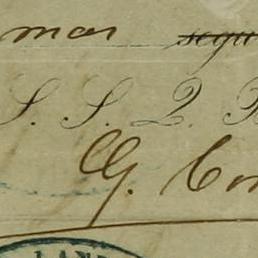 mas segu
S. S. Q. B
G. Con
LAND